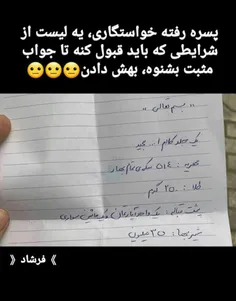 پسره رفته خواستگاری، یه لیست از
شرایطی که باید قبول کنه تا جواب
مثبت بشنوه، بهش دادن😐😐😐
" بسم تعالی "
یک جلد کلام ا... مجید
مهریه : ۵۱۴ سکه تمام بهار
طلا : ۲۵۰ گرم
پشت قباله : یک واحد آپارتمان و یک ماشین سواری
شیربها : ۲۵ میلیون
》 فرشاد 《